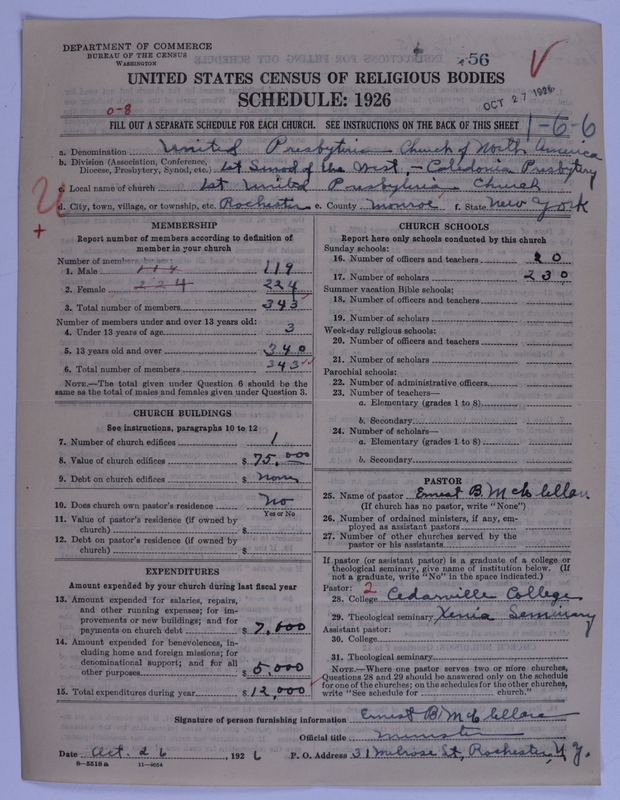 DEPARTMENT OF COMMERCE
BUREAU OF THE CENSUS
WASHINGTON
56
UNITED STATES CENSUS OF RELIGIOUS BODIES
SCHEDULE: 1926
OCT 27 1926
0-8
FILL OUT A SEPARATE SCHEDULE FOR EACH CHURCH. SEE INSTRUCTIONS ON THE BACK OF THIS SHEET
1-6-6
a. Denomination United Presbytrian Church of North America
b. Division (Association, Conference,
Diocese, Presbytery, Synod, etc.) 1st Synod of the West, - Caledonia Presbytery
c. Local name of church 1st United Presbyterian Church
d. City, town, village, or township, etc. Rochester e. County Monroe f. State New York
MEMBERSHIP
Report number of members according to definition of
member in your church
Number of members, by sex:
1. Male 114 119
2. Female 224 224
3. Total number of members 343
Number of members under and over 13 years old:
4. Under 13 years of age 3
5. 13 years old and over 340
6. Total number of members 343
NOTE.—The total given under Question 6 should be the
same as the total of males and females given under Question 3.
CHURCH BUILDINGS
See instructions, paragraphs 10 to 12
7. Number of church edifices 1
8. Value of church edifices $ 75,000
9. Debt on church edifices $ None
10. Does church own pastor's residence No
Yes or No
11. Value of pastor's residence (if owned by
church) $
12. Debt on pastor's residence (if owned by
church) $
EXPENDITURES
Amount expended by your church during last fiscal year
13. Amount expended for salaries, repairs,
and other running expenses; for im-
provements or new buildings; and for
payments on church debt $ 7,000
14. Amount expended for benevolences, in-
cluding home and foreign missions; for
denominational support; and for all
other purposes $ 5,000
15. Total expenditures during year $ 12,000
CHURCH SCHOOLS
Report here only schools conducted by this church
Sunday schools:
16. Number of officers and teachers 20
17. Number of scholars 230
Summer vacation Bible schools:
18. Number of officers and teachers
19. Number of scholars
Week-day religious schools:
20. Number of officers and teachers
21. Number of scholars
Parochial schools:
22. Number of administrative officers
23. Number of teachers—
a. Elementary (grades 1 to 8)
b. Secondary
24. Number of scholars—
a. Elementary (grades 1 to 8)
b. Secondary
PASTOR
25. Name of pastor Ernest B. McClellan
(If church has no pastor, write "None")
26. Number of ordained ministers, if any, em-
ployed as assistant pastors
27. Number of other churches served by the
pastor or his assistants
If pastor (or assistant pastor) is a graduate of a college or
theological seminary, give name of institution below. (If
not a graduate, write "No" in the space indicated.)
Pastor: 2
28. College Cedarville College
29. Theological seminary Xenia Seminary
Assistant pastor:
30. College
31. Theological seminary
NOTE.—Where one pastor serves two or more churches,
Questions 28 and 29 should be answered only on the schedule
for one of the churches; on the schedules for the other churches,
write "See schedule for church."
Signature of person furnishing information Ernest B. McClellan
Official title Minister
Date Oct. 26, 1926 P. O. Address 31 Melrose St., Rochester, N.Y.
8-5518a 11-9054